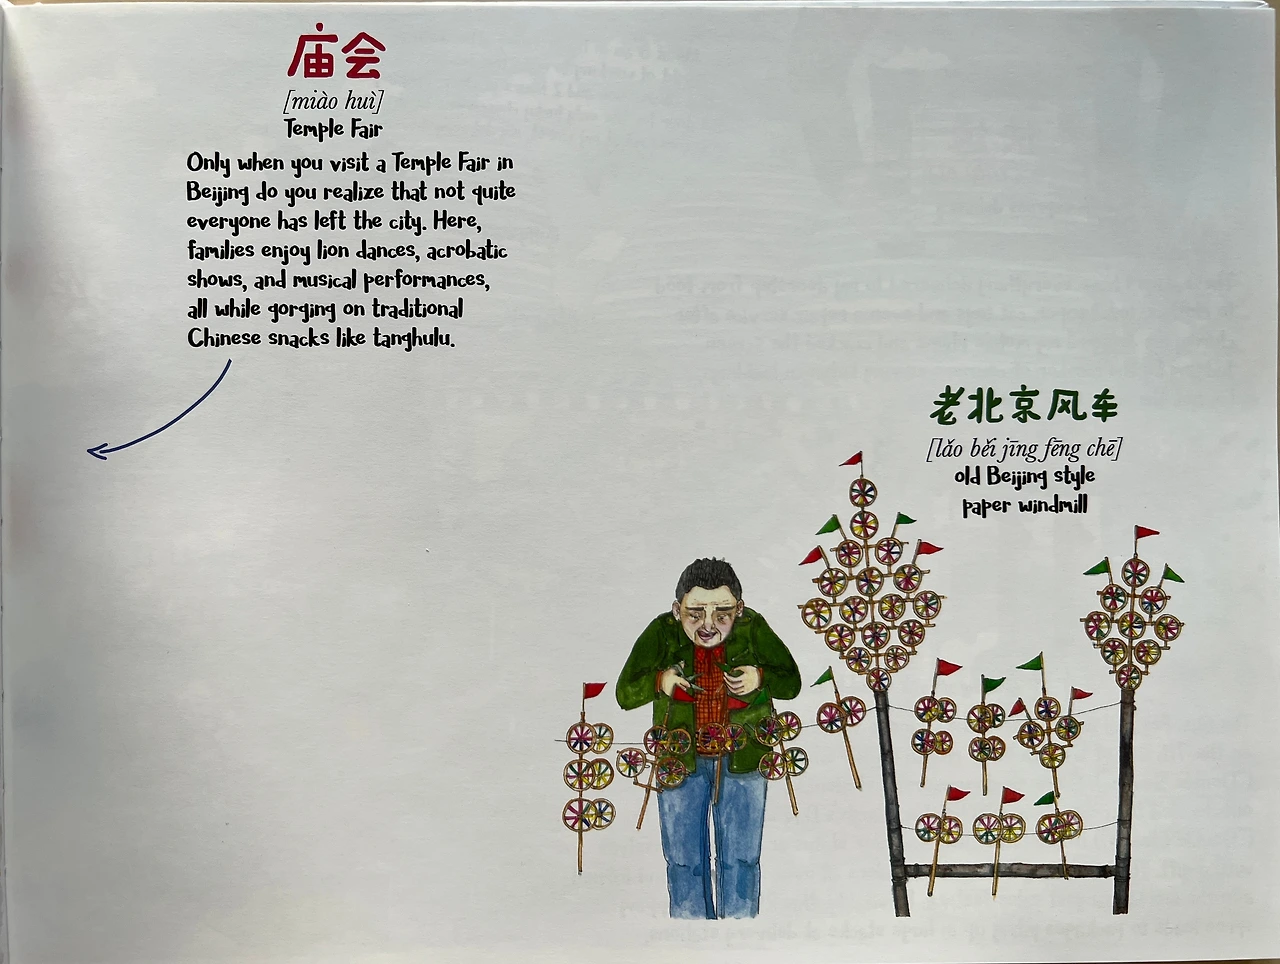 庙会
[miào huì]
Temple Fair
Only when you visit a Temple Fair in
Beijing do you realize that not quite
everyone has left the city. Here,
families enjoy lion dances, acrobatic
shows, and musical performances,
all while gorging on traditional
Chinese snacks like tanghulu.
老北京风车
[lǎo běi jīng fēng chē]
old Beijing style
paper windmill